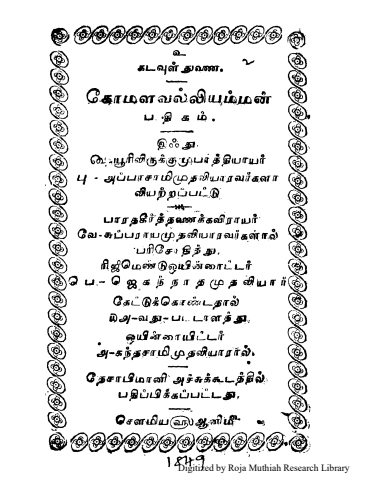 உ
கடவுள் துவண.
கோமளவல்லியம்மன்
பதிகம்.
இஃது
கூடியூரிலிருக்கும் உபாத்தியாயர்
பு - அப்பாசாமிமுதலியாரவர்களா
லியற்றப்பட்டு
பாரதகீர்த்தவணக்கவிராயர்
வே-சுப்பராயமுதலியாரவர்களால்
பரிசோதித்து,
ரிஜிமெண்டுஒயின்றைட்டர்
பெ-ஜெகந்நாதமுதலியார்
கேட்டுக்கொண்டதால்
அ-வது-படாளத்து,
ஒயின்றாயிட்டர்
அ-கந்தசாமிமுதலியாரால்.
தேசாபிமானி அச்சுக்கூடத்தில்
பதிப்பிக்கப்பட்டது,
சௌமிய ஆனிமீ
1849
Digitized by Roja Muthiah Research Library